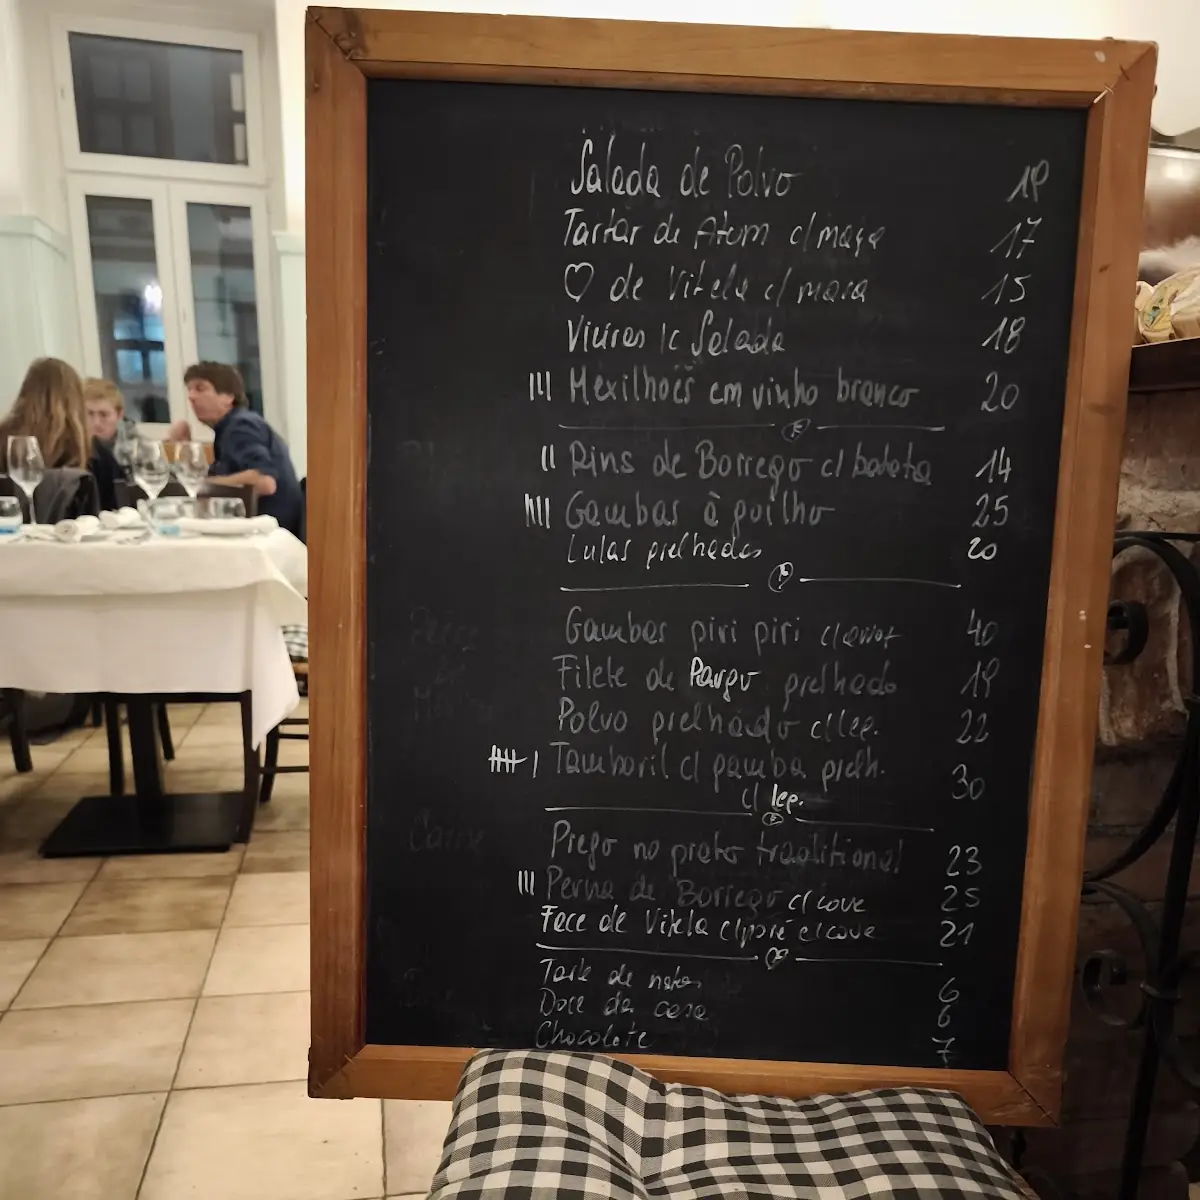 Salada de Polvo 19
Tartar de Atum c/ maça 17
♡ de Vitela c/ massa 15
Vieiras c/ Salada 18
III Mexilhoẽs em vinho branco 20
II Rins de Borrego c/ batata 14
IIII Gambas à guilho 25
Lulas grelhadas 20
Gambas piri piri c/ arroz 40
Filete de Pargo grelhado 19
Polvo grelhado c/ leg. 22
Tamboril c/ gamba grelh. 30
c/ leg.
Prego no prato traditional 23
III Perna de Borrego c/ couve 25
Face de Vitela c/ puré e couve 21
Tarte de natas 6
Doce da casa 6
Chocolate 7
Carne